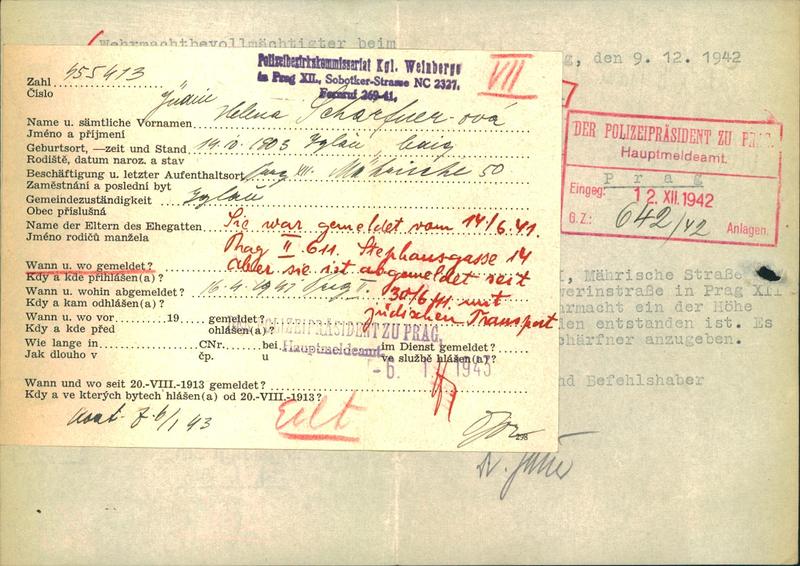 Wehrmachtbevollmächtigter beim
den 9. 12. 1942
Polizeibezirkskommissariat Kgl. Weinberge
in Prag XII., Sobotker-Strasse NC 2327.
Fernruf 269-41.
VII
Zahl 455413
Číslo
Jüdin
Name u. sämtliche Vornamen Helena Schärfner-ová
Jméno a příjmení
Geburtsort, —zeit und Stand 14.IV. 1903 Iglau ledig
Rodiště, datum naroz. a stav
Beschäftigung u. letzter Aufenthaltsort Prag XII. Mährische 50
Zaměstnání a poslední byt
Gemeindezuständigkeit Iglau
Obec příslušná
Name der Eltern des Ehegatten
Jméno rodičů manžela
Sie war gemeldet vom 14/6.41.
Prag II 611. Stephansgasse 14
aber sie ist abgemeldet seit
30/6 41. mit
jüdischen Transport
Wann u. wo gemeldet?
Kdy a kde přihlášen(a)?
Wann u. wohin abgemeldet? 16.4.1941 Prag II.
Kdy a kam odhlášen(a)?
Wann u. wo vor 19 gemeldet?
Kdy a kde před ohlášen(a)?
Wie lange in CNr. bei im Dienst gemeldet?
Jak dlouho v čp. u ve službě hlášen(a)?
DER POLIZEIPRÄSIDENT ZU PRAG,
Hauptmeldeamt
-6. 1. 1943
Wann und wo seit 20.-VIII.-1913 gemeldet?
Kdy a ve kterých bytech hlášen(a) od 20.-VIII.-1913?
6/1 43
Eilt
298
DER POLIZEIPRÄSIDENT ZU PRAG.
Hauptmeldeamt.
Prag
Eingeg: 12. XII. 1942
G. Z.: 642/42 Anlagen.
Mährische Straße
werinstraße in Prag XII
hrmacht ein der Höhe
den entstanden ist. Es
chärfner anzugeben.
nd Befehlshaber